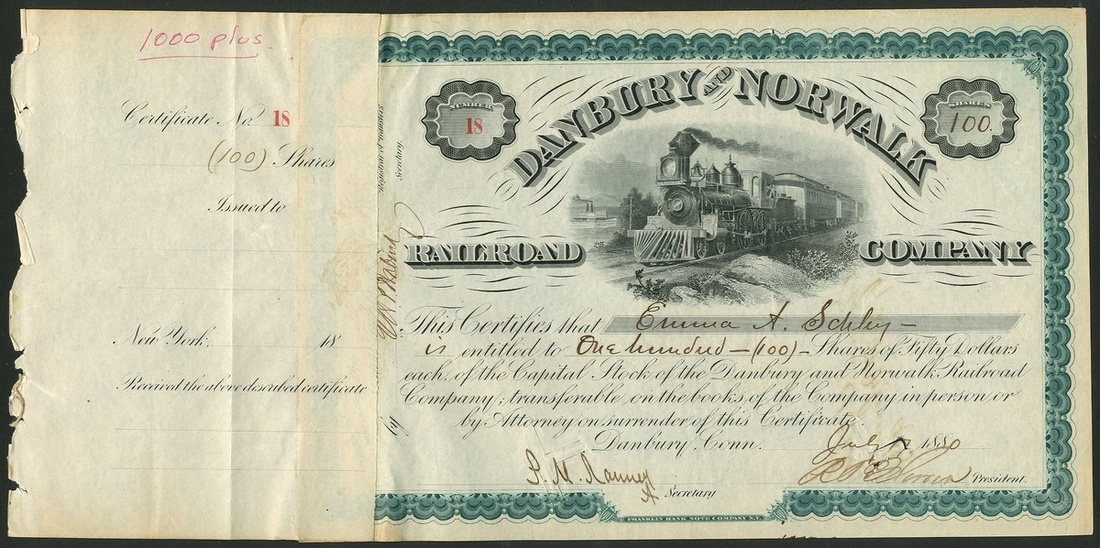 1000 plus
Certificate No. 18
(100) Shares
Issued to
New York, 18
Received the above described certificate
Registrar of Transfers
Secretary.
by
NUMBER
18
SHARES
100.
DANBURY AND NORWALK
RAILROAD COMPANY
This Certifies that Emma A. Schley
is entitled to One hundred - (100) - Shares of Fifty Dollars
each, of the Capital Stock of the Danbury and Norwalk Railroad
Company; transferable on the books of the Company in person or
by Attorney on surrender of this Certificate.
Danbury, Conn. July 1880
Secretary
President.
FRANKLIN BANK NOTE COMPANY N.Y.